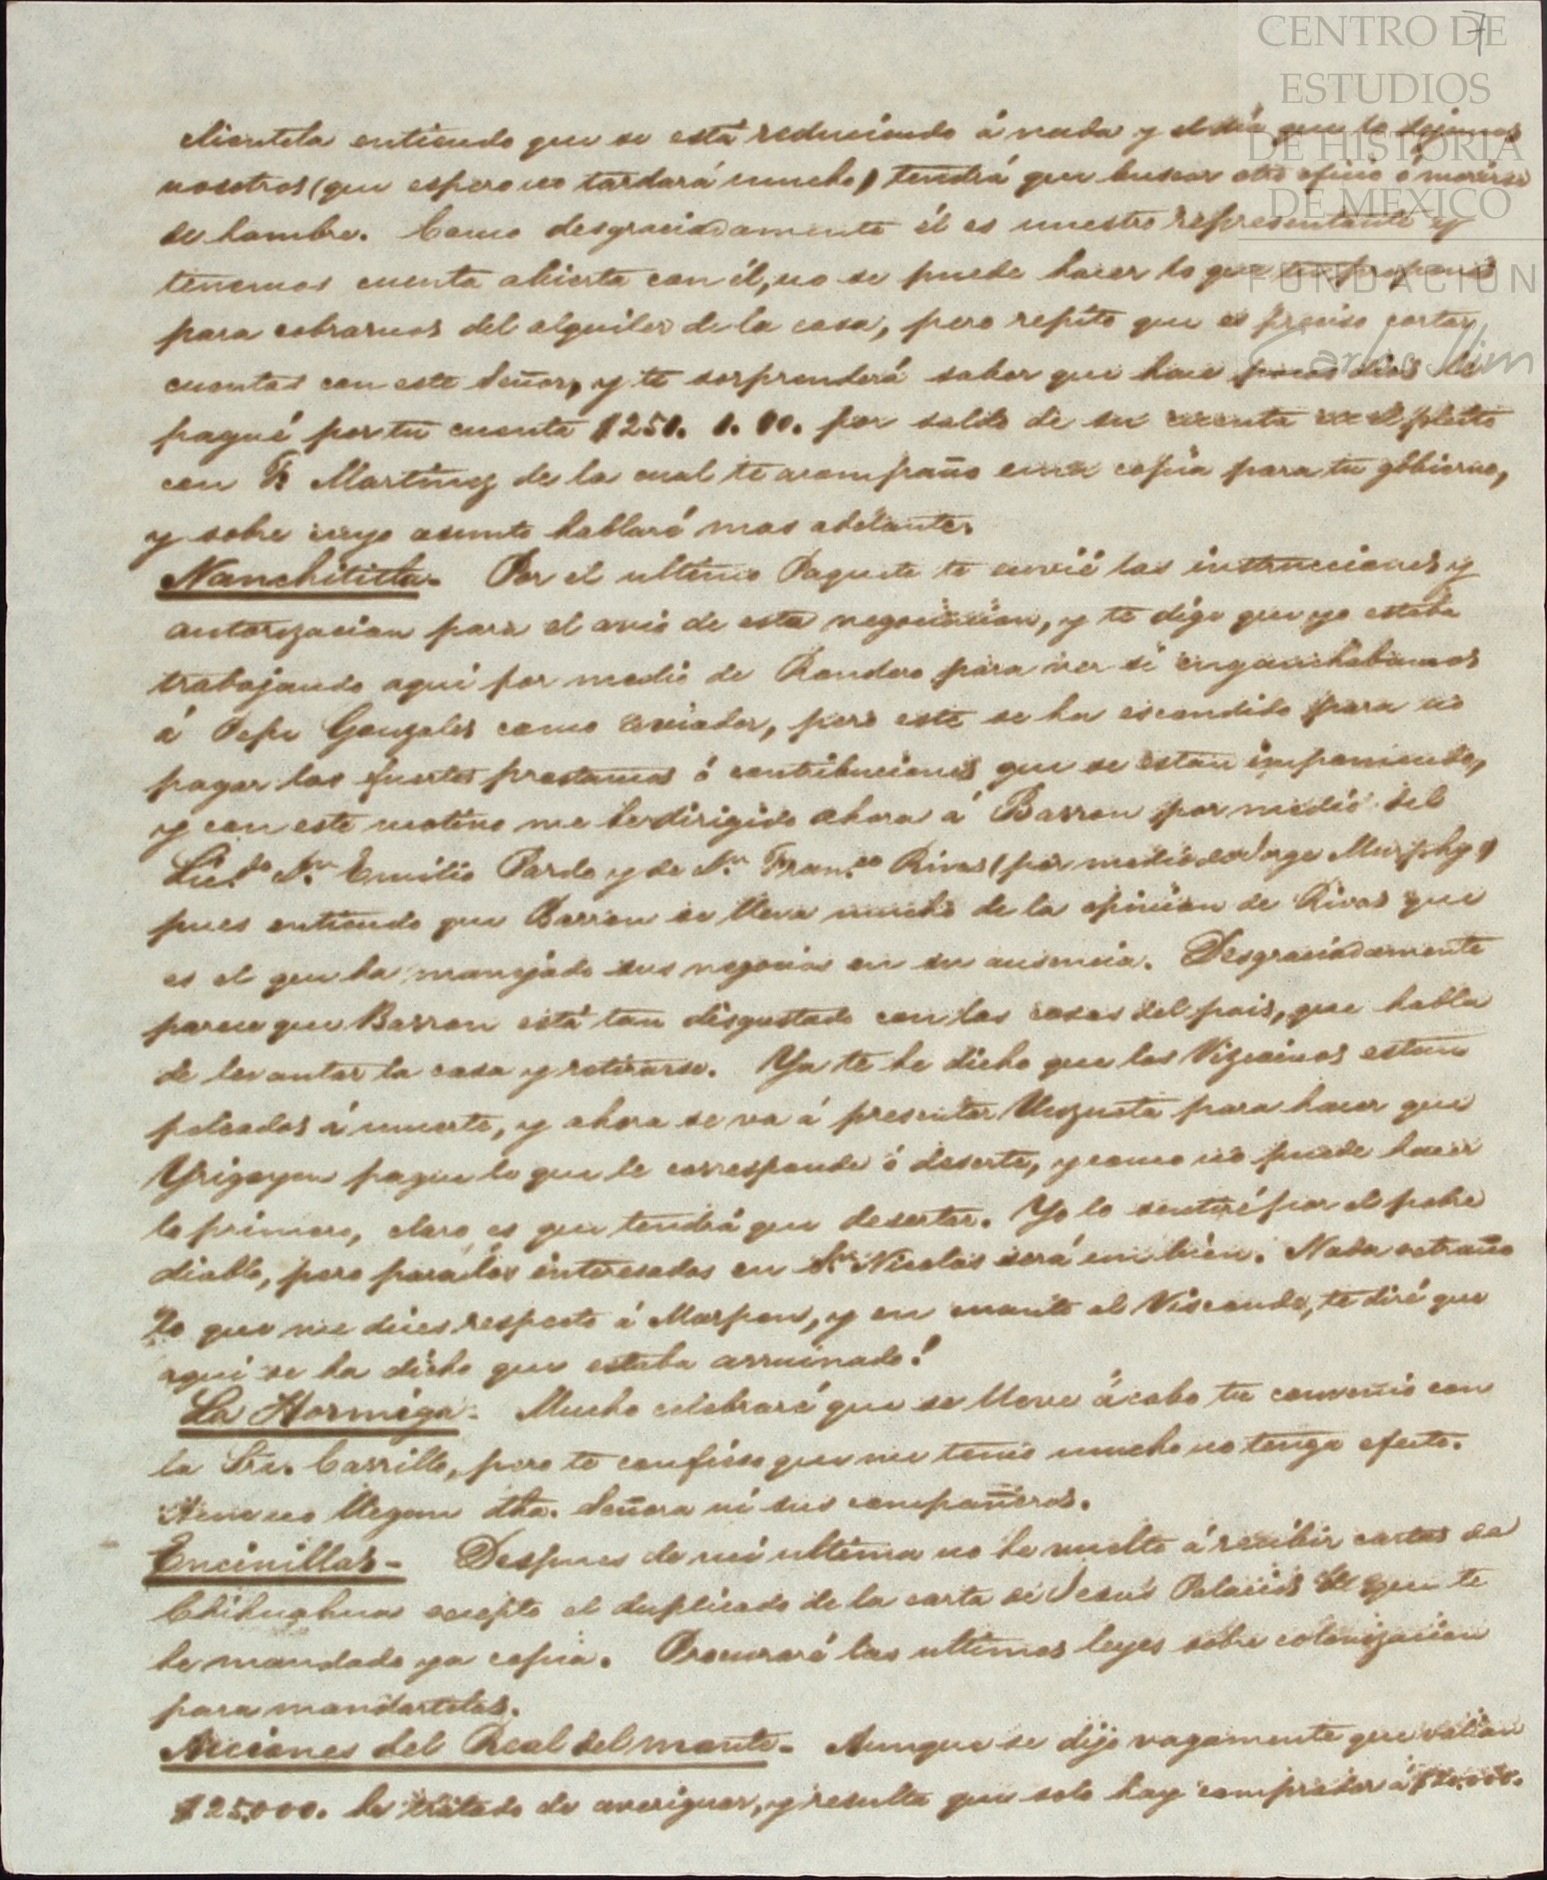 CENTRO DE
ESTUDIOS
DE HISTORIA
DE MEXICO
FUNDACIÓN
Carlos Slim
7
clientela entiendo que se está reduciendo á nada y el dia que lo dejemos
nosotros (que espero no tardará mucho) tendrá que buscar otro oficio ó morirse
de hambre. Como desgraciadamente él es nuestro representante y
tenemos cuenta abierta con él, no se puede hacer lo que propones
para cobrarnos del alquiler de la casa, pero repito que es preciso cortar
cuentas con este Señor, y te sorprenderá saber que hace pocos dias le
pagué por tu cuenta $250. 0. 00. por saldo de su cuenta en el pleito
con F. Martinez de la cual te acompaño una copia para tu gobierno,
y sobre cuyo asunto hablaré mas adelante.
Nanchititla- Por el ultimo Paquete te envié las instrucciones y
autorizacion para el avio de esta negociacion, y te dige que yo estaba
trabajando aqui por medio de Rondero para ver si enganchabamos
á Pepe Gonzales como aviador, pero este se ha escondido para no
pagar los fuertes prestamos ó contribuciones que se estan imponiendo,
y con este motivo me he dirigido ahora á Barron por medio del
Lic.do Dn. Emilio Pardo y de Dn. Fran.co Rivas (por medio de Jorge Murphy)
pues entiendo que Barron se lleva mucho de la opinion de Rivas que
es el que ha manejado sus negocios en su ausencia. Desgraciadamente
parece que Barron está tan disgustado con las cosas del pais, que habla
de levantar la casa y retirarse. Ya te he dicho que los Vizcainos estan
peleados á muerte, y ahora se va á presentar Unzueta para hacer que
Yrigoyen pague lo que le corresponde ó deserte, y como no puede hacer
lo primero, claro es que tendrá que desertar. Yo lo sentiré por el pobre
diablo, pero para los interesados en Sn. Nicolás será un bien. Nada estraño
lo que me dices respecto á Marpon, y en cuanto al Visconde, te diré que
aqui se ha dicho que estaba arruinado!
La Hormiga- Mucho celebraré que se lleve á cabo tu convenio con
la Sra. Carrillo, pero te confieso que me temo mucho no tenga efecto.
Aun no llegan dha. Señora ni sus compañeros.
Encinillas- Despues de mi ultima no he vuelto á recibir cartas de
Chihuahua excepto el duplicado de la carta de Jesus Palacios de que te
he mandado ya copia. Procuraré las ultimas leyes sobre colonizacion
para mandartelas.
Acciones del Real del monte- Aunque se dijo vagamente que valian
$25,000. he tratado de averiguar, y resulta que solo hay comprador á $20,000.